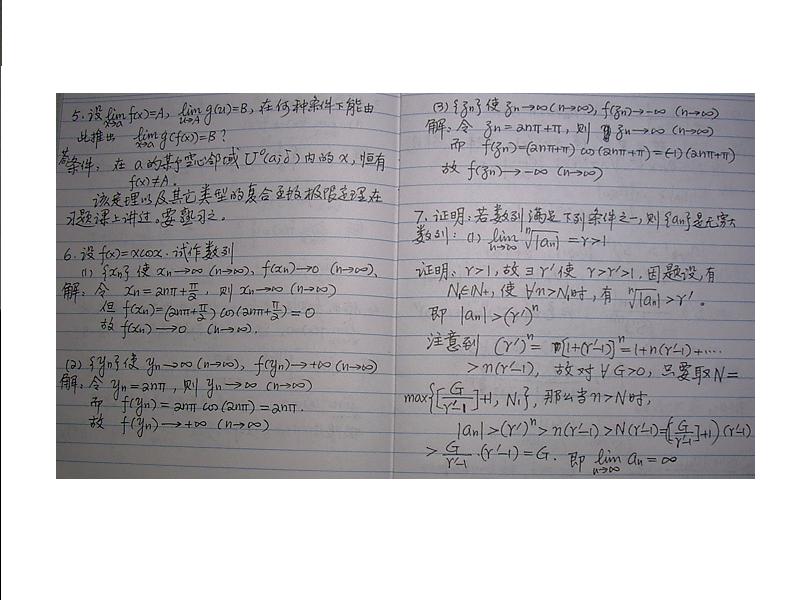 5. 设 lim_{x→a} f(x)=A, lim_{u→A} g(u)=B, 在何种条件下能由
此推出 lim_{x→a} g(f(x))=B ?
答: 条件: 在 a 的某个空心邻域 U°(a;δ) 内的 x, 恒有
f(x)≠A.
该定理以及其它类型的复合函数极限定理在
习题课上讲过。要熟习之。
6. 设 f(x)=xcosx. 试作数列
(1) {xn} 使 xn→∞ (n→∞), f(xn)→0 (n→∞),
解: 令 xn = 2nπ+π/2, 则 xn→∞ (n→∞)
但 f(xn)=(2nπ+π/2) cos(2nπ+π/2)=0
故 f(xn)→0 (n→∞).
(2) {yn} 使 yn→∞ (n→∞), f(yn)→+∞ (n→∞)
解: 令 yn=2nπ, 则 yn→∞ (n→∞)
而 f(yn)=2nπ cos(2nπ)=2nπ.
故 f(yn)→+∞ (n→∞)
(3) {zn} 使 zn→∞(n→∞), f(zn)→-∞ (n→∞)
解: 令 zn=2nπ+π, 则 zn→∞ (n→∞)
而 f(zn)=(2nπ+π) cos(2nπ+π)=(-1)(2nπ+π)
故 f(zn)→-∞ (n→∞)
7. 证明: 若数列 满足下列条件之一, 则 {an} 是无穷大
数列: (1) lim_{n→∞} ⁿ√|an| = r>1
证明: r>1, 故∃ r' 使 r>r'>1. 因题设, 有
N₁∈N+, 使 ∀n>N₁时, 有 ⁿ√|an| > r'.
即 |an|>(r')ⁿ
注意到 (r')ⁿ = [1+(r'-1)]ⁿ=1+n(r'-1)+····
>n(r'-1), 故对 ∀ G>0, 只要取 N=
max{[G/(r'-1)]+1, N₁}, 那么当 n>N时,
|an|>(r')ⁿ>n(r'-1)>N(r'-1)=([G/(r'-1)]+1)(r'-1)
> G/(r'-1) ·(r'-1)=G. 即 lim_{n→∞} an=∞